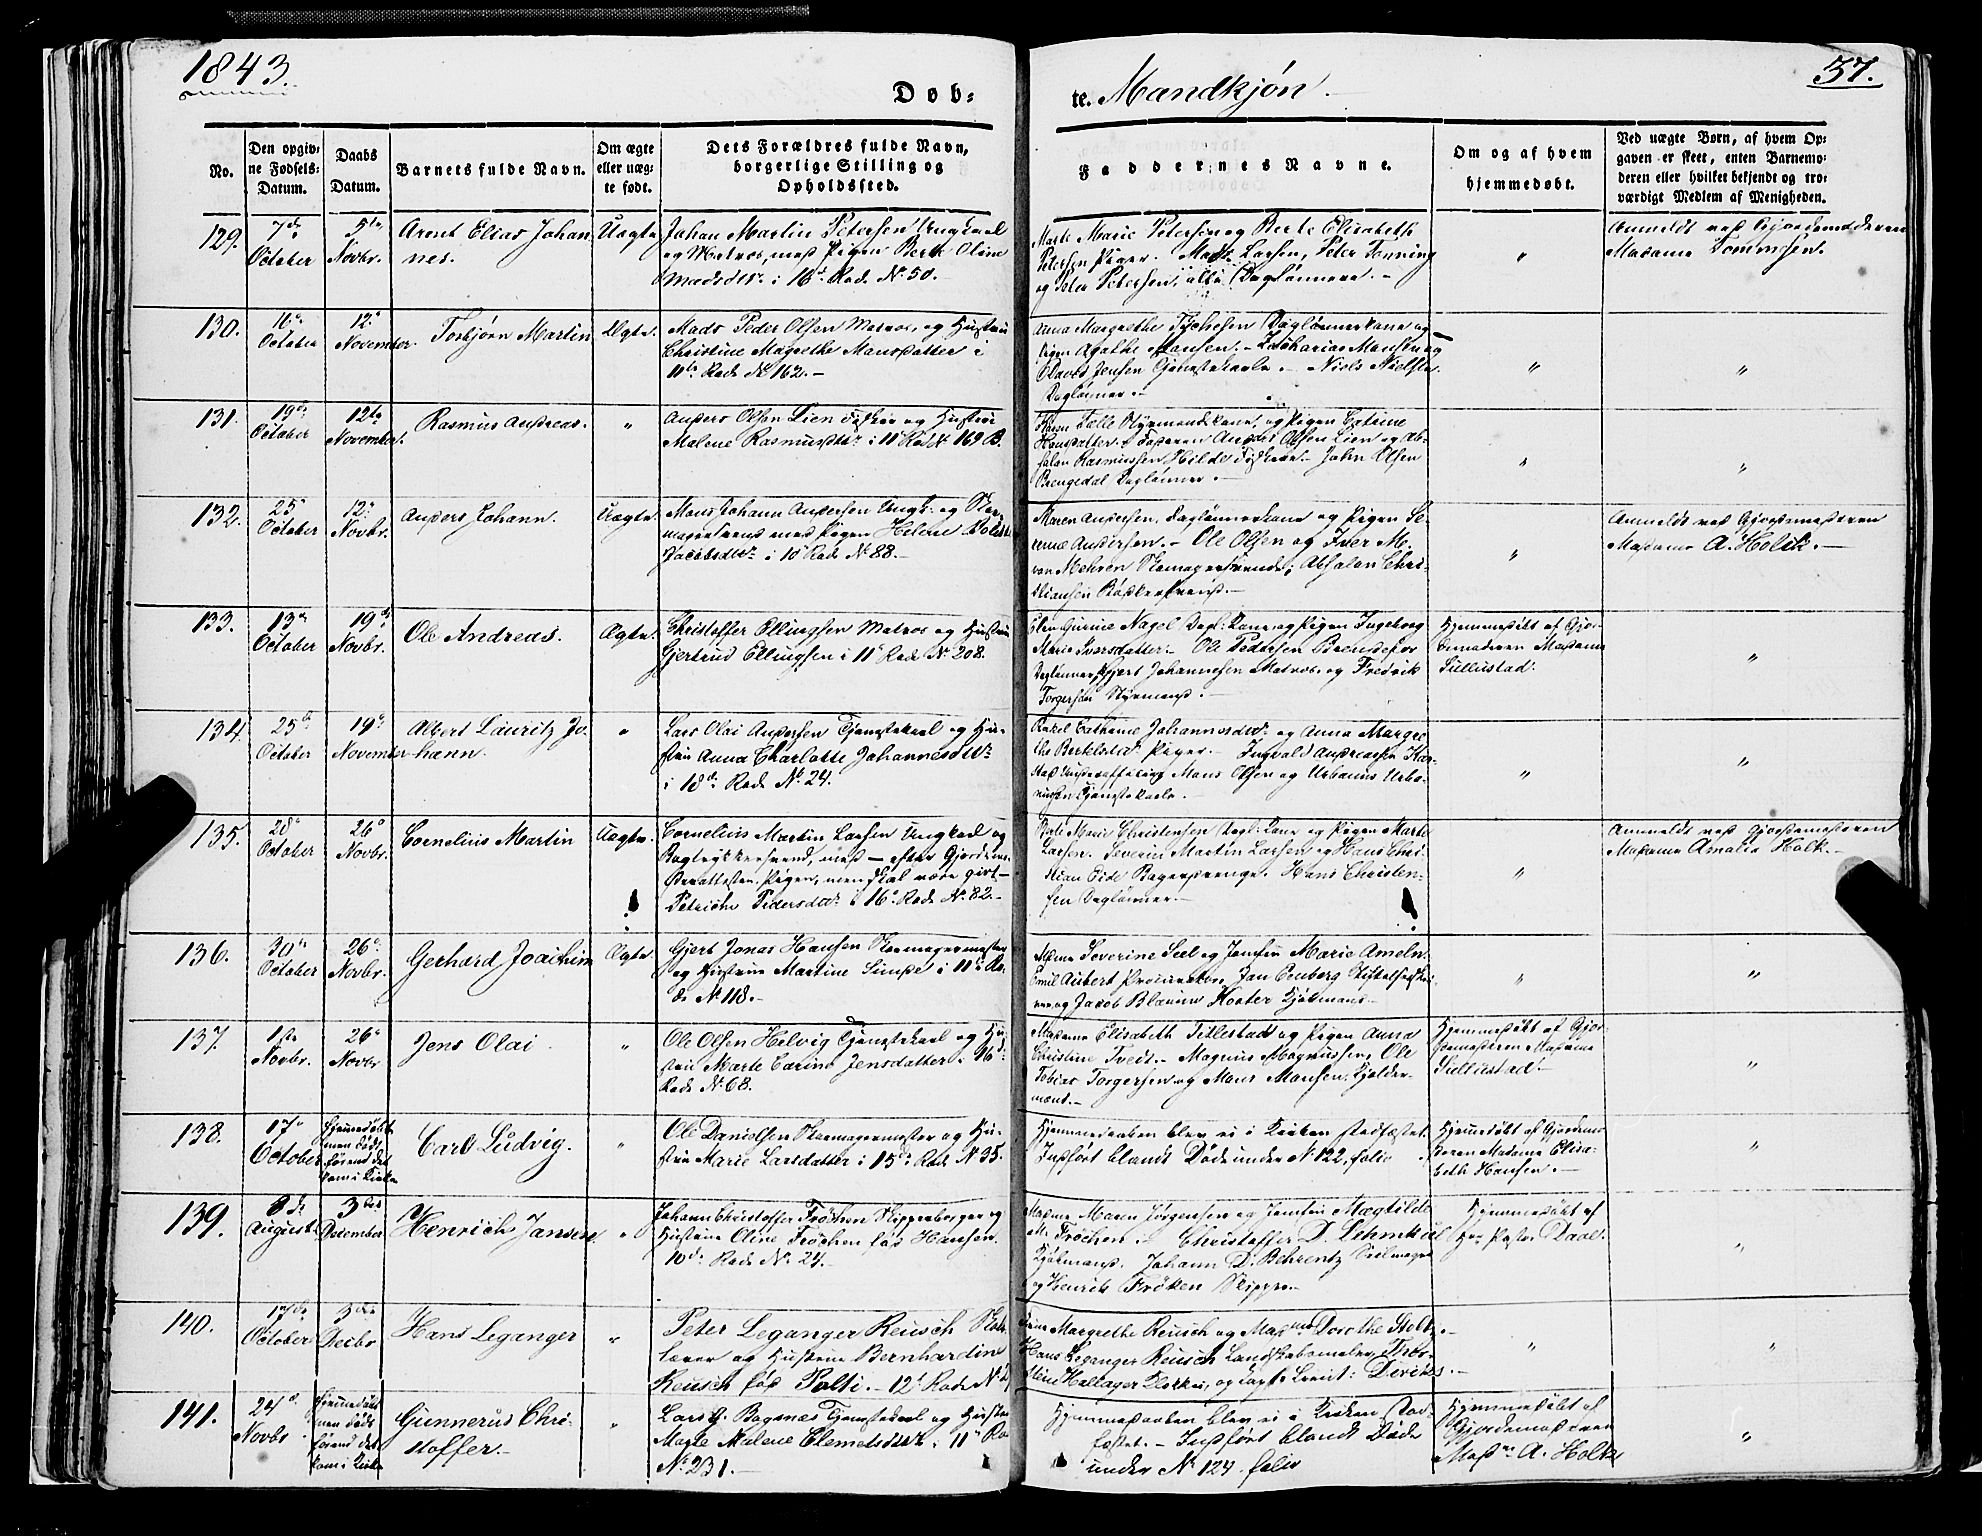 1843.
Døb-
te. Mandkjøn.
37.
No.
Den opgiv-
ne Fødsels-
Datum.
Daabs
Datum.
Barnets fulde Navn.
Om ægte
eller uæg-
te født.
Dets Forældres fulde Navn,
borgerlige Stilling og
Opholdssted.
Faddernes Navne.
Om og af hvem
hjemmedøbt.
Ved uægte Børn, af hvem Op-
gaven er skeet, enten Barnemo-
deren eller hvilket bekjendt og tro-
værdigt Medlem af Menigheden.
129.
7de
October
5te
Novbr.
Arent Elias Johan
nes.
Uægte
Johan Martin Petersen Ungkarl
og Matros, med Pigen Berte Oline
Madsdtr. i 16d Rode No. 50.
Marte Marie Petersen og Berte Elisabeth
Petersen Piger. Mads Larsen, Peter Tønning
og Peter Petersen, alle Daglønnere.
"
Anmeldt ved Gjordemoderen
Madame Tommsen.
130.
16
October
12
November.
Torbjørn Martin
Ægte.
Mads Peder Olsen Matros, og Hustrue
Christine Magrethe Mansdatter i
11te Rode No 162.
Anna Margrethe Daglønnerkone og
Pigen Agathe Hansen. Zacharias Monsen og
Jensen Tjenestekarle. Niels Nielsen
Daglønner.
"
"
131.
19de
October
12te
November.
Rasmus Andreas.
"
Anders Olsen Lien Fisker og Hustrue
Malene Rasmusdtr. i 11 Rode No 169 B.
Karen Telle Styrmandskone, og Pigen Catrine
Hansdatter. Faderen Anders Olsen Lien og Ab-
salon Rasmussen Hilde Fiskere. John Olsen
Daglønner.
"
"
132.
25
October
12
Novbr.
Anders Johann.
Uægte.
Mons Johann Andersen Ungk. og Sko-
magersvend med Pigen Helene
Jacobsdtr. i 10 Rode No 88.
Maren Andersen, Daglønnerkone og Pigen Se-
rine Andersen. Ole Olsen og Iver M.
von Mehren Skomagersvende; Absalon Chri-
stiansen Bødkersvend.
"
Anmeldt ved Gjordemoderen
Madame A. Holck.
133.
13
October
19de
Novbr.
Ole Andreas.
Ægte.
Christoffer Ellingsen Matros og Hustrue
Gjertrud Ellingsen i 11 Rode No 208.
Gurine Nagel Dagl: Kone og Pigen Ingeborg
Marie Iversdatter. Ole Pedersen
Daglønner, Gjert Johannesen Matros, og Fredrik
Torgersen Styrmand.
Hjemmedøbt af Gjor-
demoderen Madame
Tillustad.
"
134.
25de
October
19
November
Albert Lauritz Jo-
hann.
"
Lars Olai Andersen Tjenestekarl og Hu-
strue Anna Charlotte Johannesdtr
i 18de Rode No 24.
Rakel Cathrine Johannesdtr. og Anna Margre-
the Piger. Ingvald Andreasen
Mons Olsen og Urbanus Urba-
nusen Tjenestekarle.
"
"
135.
28
October
26
Novbr.
Cornelius Martin
Uægte.
Cornelius Martin Larsen Ungkarl og
med — efter Gjordemo-
Pigen, men skal være gift —
Petriche Pedersdtr. i 16 Rode No. 82.
Marie Christensen Dagl: Kone og Pigen Marte
Larsen. Severin Martin Larsen og Hans Chri-
stian Bagerdrenge. Hans Christen-
sen Daglønner.
"
Anmeldt ved Gjordemoderen
Madame Amalia Holk.
136.
30
October
26
Novbr.
Gerhard Joachim
Ægte.
Gjert Jonas Hansen Skomagermester
og Hustrue Martine Limpe i 11 Ro-
de No 118.
Severine Seel og Jomfru Marie Ameln.
Emil Aubert Procurator, Jan
og Jacob Blaauw Konter Kjøbmand
"
"
137.
1ste
Novbr.
26
Novbr
Jens Olai
"
Ole Olsen Helvig Tjenestekarl og Hu-
strue Marte Carine Jensdatter i 16de
Rode No 68.
Madame Elisabeth Titlestad og Pigen Anna
Christine Tvedt. Magnus Magnussen, Ole
Tobias Torgersen og Mons Monsen,
Hjemmedøbt af Gjor-
demoderen Madame
Tillustad.
"
138.
17
October
Hjemmedøbt
men døde
førend det
kom i Kirke
Carl Ludvig.
"
Ole Danielsen Skomagermester og Hu-
strue Marie Larsdatter i 15de Rode No 35.
Hjemmedaaben blev ei i Kirken stadfæstet.
Indført blandt Døde under No 122, folio
Hjemmedøbt af Gjordemo-
deren Madame Elisa-
beth Hansen.
"
139.
8de
August
3die
December
Henrich Jansen
"
Johann Christoffer Frøchen Skipperborger og
Hustrue Oline Frøchen fød Hansen.
10de Rode No. 24.
Madme Maren Jørgensen og Jomfru Magtilde
M. Frøchen. Christoffer D. Lehmkul
Kjøbmand. Johann D. Behrentz Seilmager
og Henrik Frøken Skipper
Hjemmedøbt af
Hr. Pastor Daae.
"
140.
17de
October
3die
Decbr
Hans Leganger
"
Peter Leganger Reusch Skole-
lærer og Hustrue Bernhardine
Reusch fød Polti. 12te Rode No
Margrethe Reusch og Madme Dorothe Steltz.
Hans Leganger Reusch Landskabsmaler, Thor-
stein Hallager Klokker, og Capt: Lieut: Derickes.
"
"
141.
24de
Novbr
Hjemmedøbt
men døde
førend det
kom i Kirke
Gunnerus Chri-
stoffer.
"
Lars J. Bognæs Tjenestekarl og Hustrue
Magle Malene Clemetsdtr. i 11te Ro
No 231.
Hjemmedaaben blev ei i Kirken stad-
fæstet. Indført blandt Døde
under No 124. folio
Hjemmedøbt af
Gjordemoderen
Madme A. Holk
"